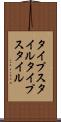 タイプスタ
イルタイプ
スタイル